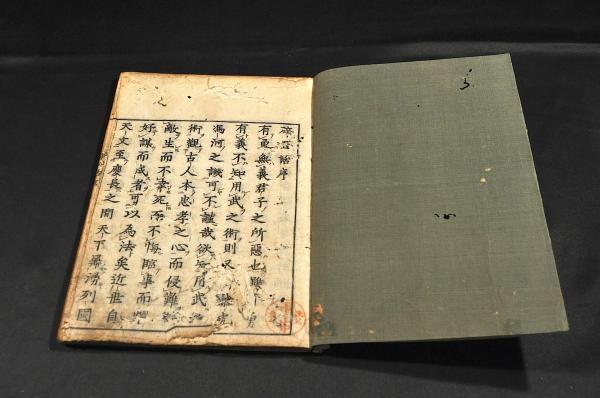 話序
有勇無義君子之所惡也雖
有義不知用武之術則又
馮河之譏可不謹哉欲知用武
術觀古人本忠孝之心而侵難
敵生而不幸死而不悔臨事而
好謀而成者可以為法矣近世自
天文至慶長之間天下列國